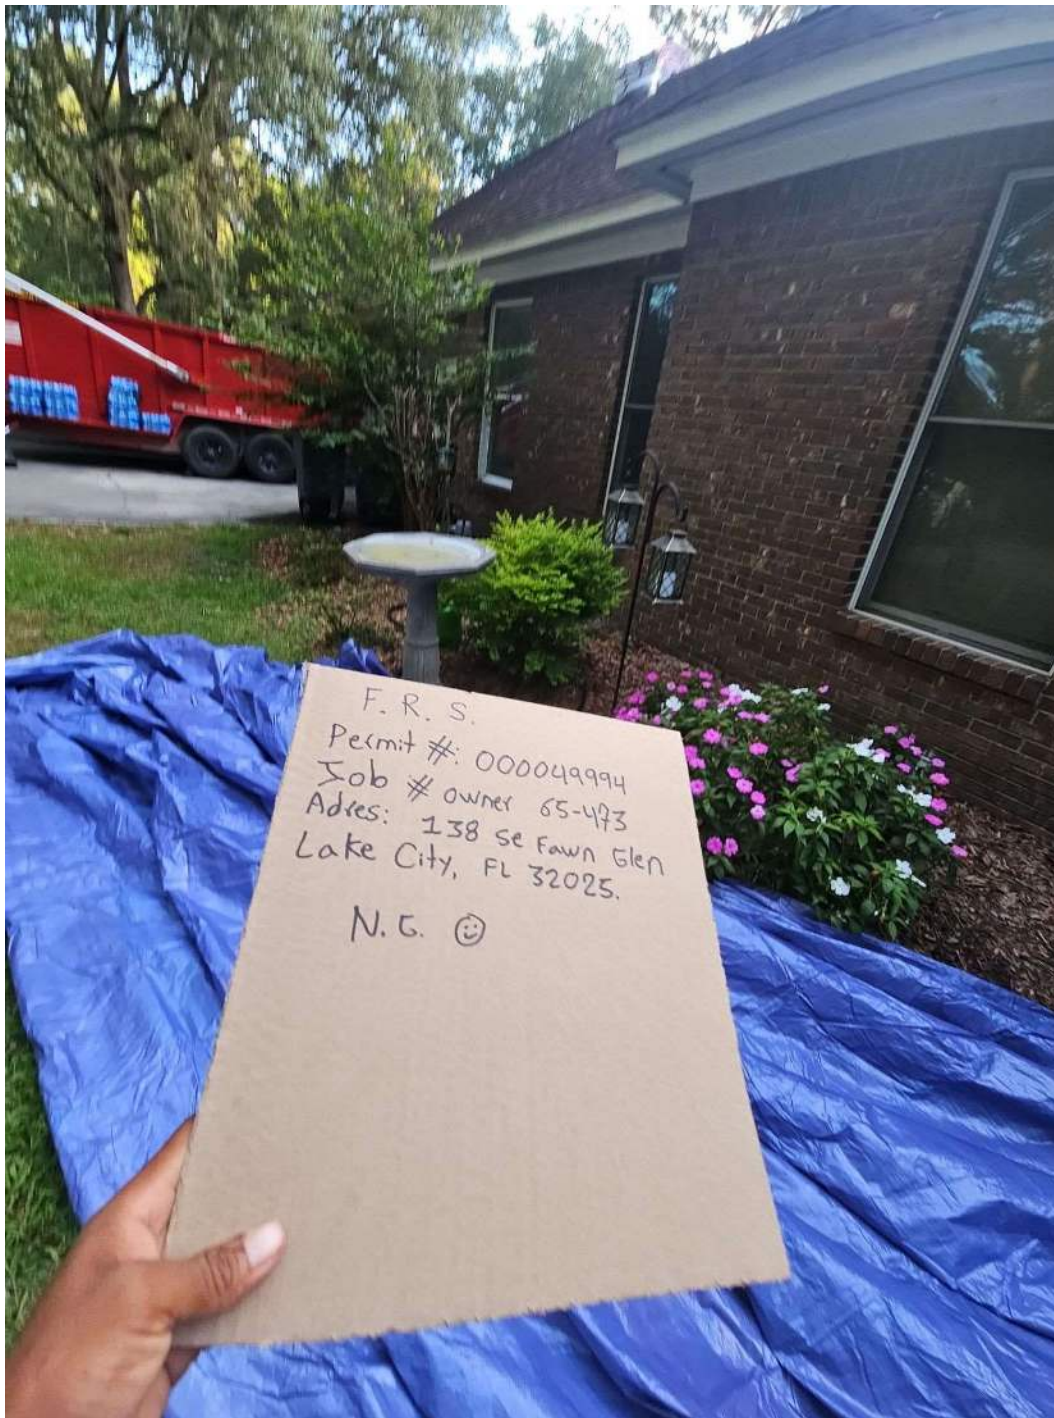 F. R. S.
Permit #: 000049994
Job # owner 65-473
Adres: 138 Se Fawn Glen
Lake City, FL 32025.
N.G. ☺